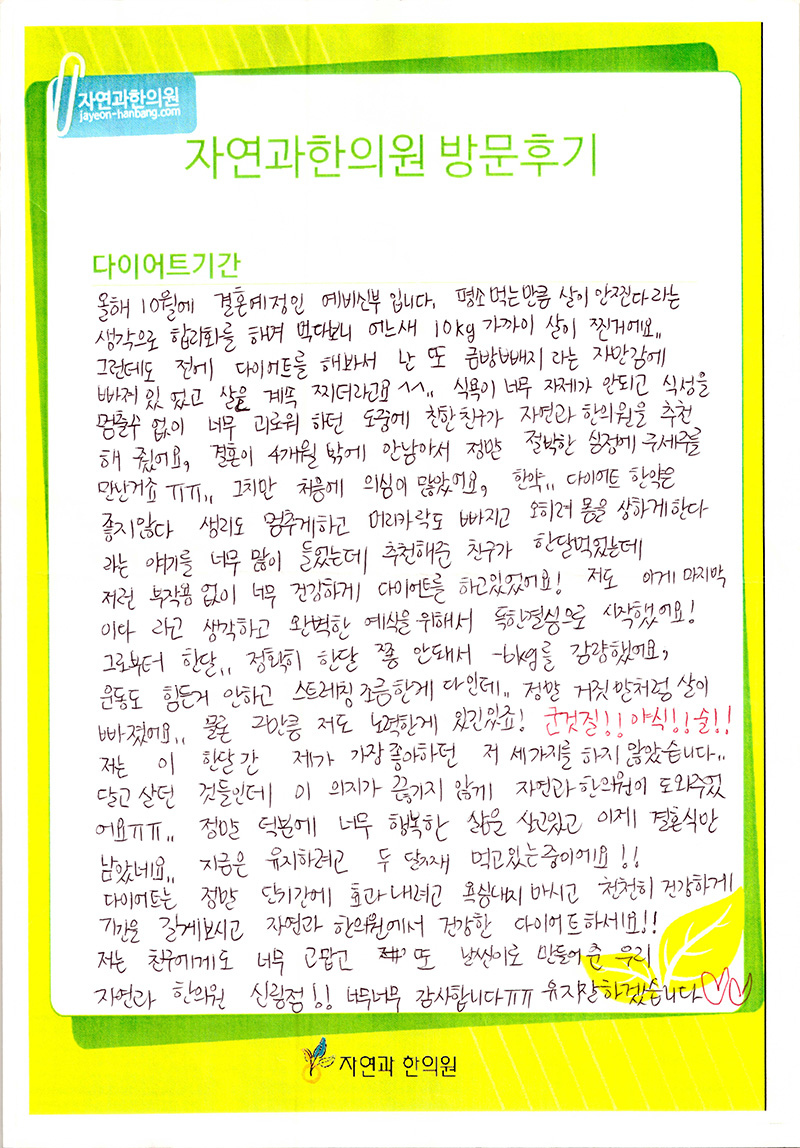 자연과한의원
jayeon-hanbang.com
자연과한의원 방문후기
다이어트기간
올해 10월에 결혼예정인 예비신부 입니다. 평소 먹는만큼 살이 안찐다 라는
생각으로 합리화를 해며 먹다보니 어느새 10kg 가까이 살이 찐거에요..
그런데도 전에 다이어트를 해봐서 난 또 금방빼지 라는 자만감에
빠져있 었고 살은 계속 찌더라고요 ^^.. 식욕이 너무 자제가 안되고 식성을
멈출수 없이 너무 괴로워 하던 도중에 친한친구가 자연과 한의원을 추천
해 줬어요, 결혼이 4개월 밖에 안남아서 정말 절박한 심정에 구세주를
만난거죠 ㅠㅠ.. 그치만 처음에 의심이 많았어요, 한약.. 다이어트 한약은
좋지않다 생리도 멈추게하고 머리카락도 빠지고 오히려 몸을 상하게한다
라는 얘기를 너무 많이 들었는데 추천해준 친구가 한달먹었는데
저런 부작용 없이 너무 건강하게 다이어트를 하고있었어요! 저도 이게 마지막
이다 라고 생각하고 완벽한 예식을 위해서 독한결심으로 시작했어요!
그로부터 한달.. 정확히 한달 쫌 안돼서 -6kg를 감량했어요,
운동도 힘든거 안하고 스트레칭 조금한게 다인데.. 정말 거짓말처럼 살이
빠졌어요.. 물론 그만큼 저도 노력한게 있긴있죠! 군것질!! 야식!! 술!!
저는 이 한달간 제가 가장 좋아하던 저 세가지를 하지 않았습니다..
달고 살던 것들인데 이 의지가 끊기지 않게 자연과 한의원이 도와주었
어요ㅠㅠ.. 정말 덕분에 너무 행복한 삶을 살고있고 이제 결혼식만
남았네요.. 지금은 유지하려고 두 달째 먹고있는중이에요!!
다이어트는 정말 단기간에 효과내려고 욕심내지 마시고 천천히 건강하게
기간을 길게보시고 자연과 한의원에서 건강한 다이어트하세요!!
저는 친구에게도 너무 고맙고 또 날씬이로 만들어 준 우리
자연과 한의원 신림점!! 너무너무 감사합니다ㅠㅠ 유지잘하겠습니다♡♡
자연과 한의원